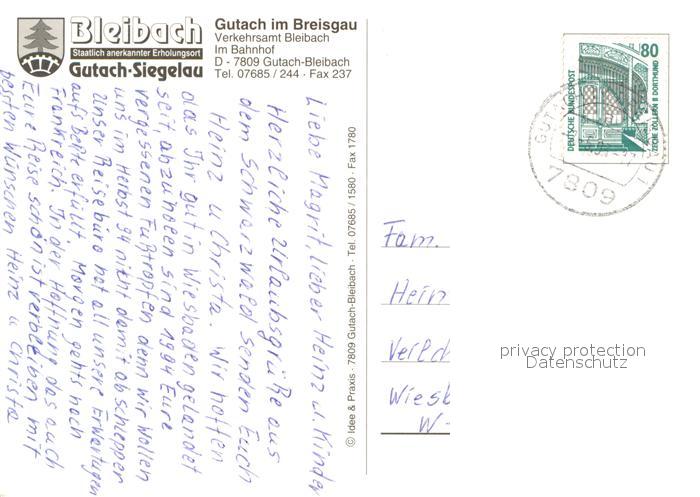 Bleibach
Staatlich anerkannter Erholungsort
Gutach-Siegelau
Gutach im Breisgau
Verkehrsamt Bleibach
Im Bahnhof
D - 7809 Gutach-Bleibach
Tel. 07685 / 244 · Fax 237
Liebe Magrit, lieber Heinz u. Kinder
Herzliche Urlaubsgrüße aus
dem Schwarzwald senden Euch
Heinz u Christa. Wir hoffen
das Ihr gut in Wiesbaden gelandet
seit, abzuholen sind 1994 Eure
vergessenen Fußtropfen denn wir wollen
uns im Herbst 94 nicht damit abschleppen
Unser Reisebüro hat all unsere Erwartugen
aufs Beste erfüllt. Morgen gehts noch
Frankreich. In der Hoffnung das auch
Eure Reise schön ist verbleiben mit
besten Wünschen Heinz u Christa
© Idee & Praxis · 7809 Gutach-Bleibach · Tel. 07685 / 1580 · Fax 1780
80
DEUTSCHE BUNDESPOST
ZECHE ZOLLERN II DORTMUND
7809
Fam.
Hein
Veilch
Wiesb
W-
privacy protection
Datenschutz